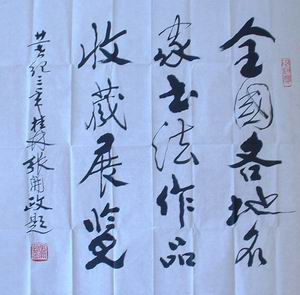 全國各地名
家书法作品
收藏展览
廿世纪三年桂林张开政题